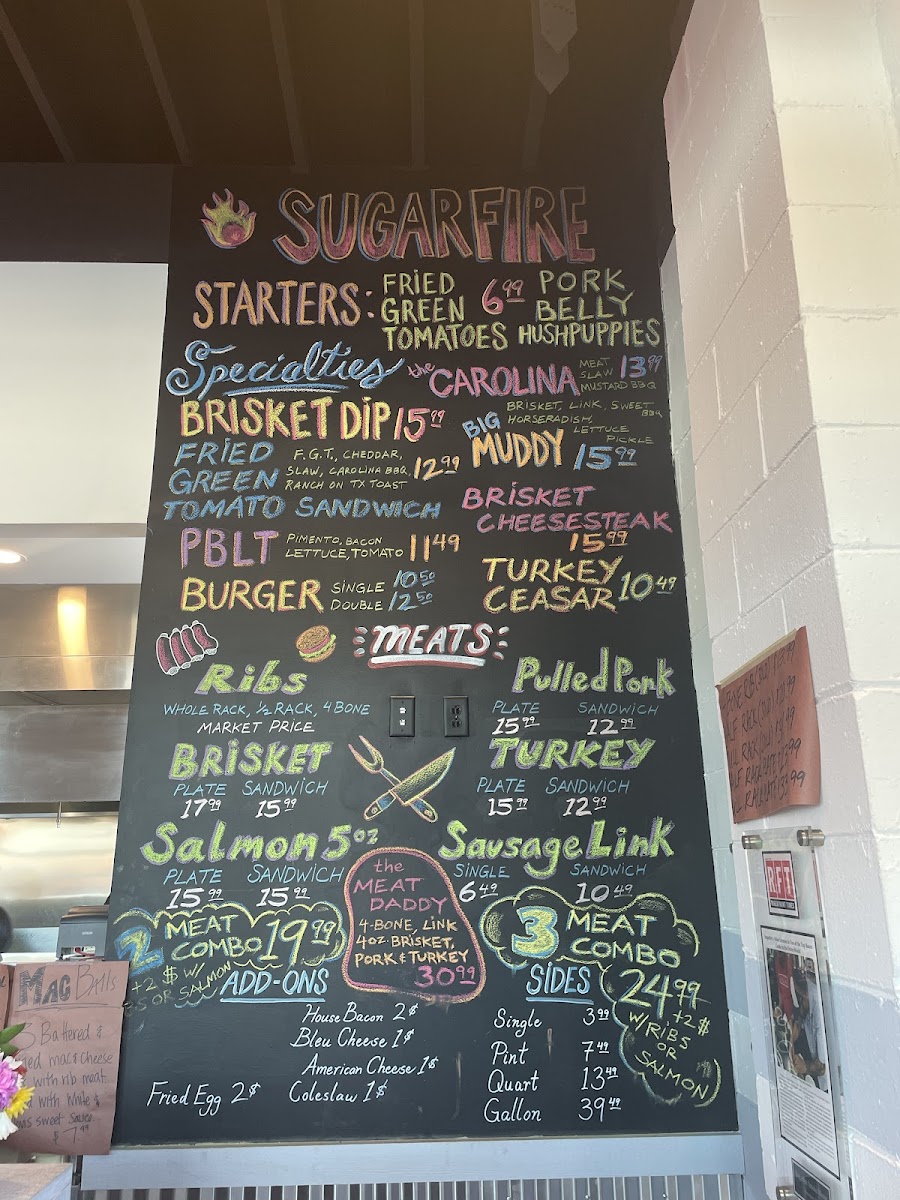 SUGARFIRE
STARTERS: FRIED GREEN TOMATOES 6.99 PORK BELLY HUSHPUPPIES
Specialties
BRISKET DIP 15.99
FRIED GREEN TOMATO SANDWICH
F.G.T., CHEDDAR,
SLAW, CAROLINA BBQ,
RANCH ON TX TOAST
12.99
PBLT
PIMENTO, BACON
LETTUCE, TOMATO
11.49
BURGER
SINGLE 10.50
DOUBLE 12.50
the CAROLINA
MEAT
SLAW
MUSTARD BBQ
13.99
BIG MUDDY
BRISKET, LINK, SWEET BBQ
HORSERADISH,
LETTUCE
PICKLE
15.99
BRISKET
CHEESESTEAK
15.99
TURKEY
CEASAR 10.49
MEATS
Ribs
WHOLE RACK, 1/2 RACK, 4 BONE
MARKET PRICE
Pulled Pork
PLATE SANDWICH
15.99 12.99
BRISKET
PLATE SANDWICH
17.99 15.99
TURKEY
PLATE SANDWICH
15.99 12.99
Salmon 5oz
PLATE SANDWICH
15.99 15.99
Sausage Link
SINGLE SANDWICH
6.49 10.49
the
MEAT
DADDY
4-BONE, LINK
4oz BRISKET,
PORK & TURKEY
30.99
2 MEAT
COMBO 19.99
+2$ W/
OR SALMON
3 MEAT
COMBO
24.99
+2$
W/RIBS
OR
SALMON)
ADD-ONS
House Bacon 2$
Bleu Cheese 1$
American Cheese 1$
Fried Egg 2$
Coleslaw 1$
SIDES
Single 3.99
Pint 7.49
Quart 13.49
Gallon 39.49
MAC Balls
3 Battered &
mac & cheese
with rib meat
with white &
sweet sauce
$7.99
RFT